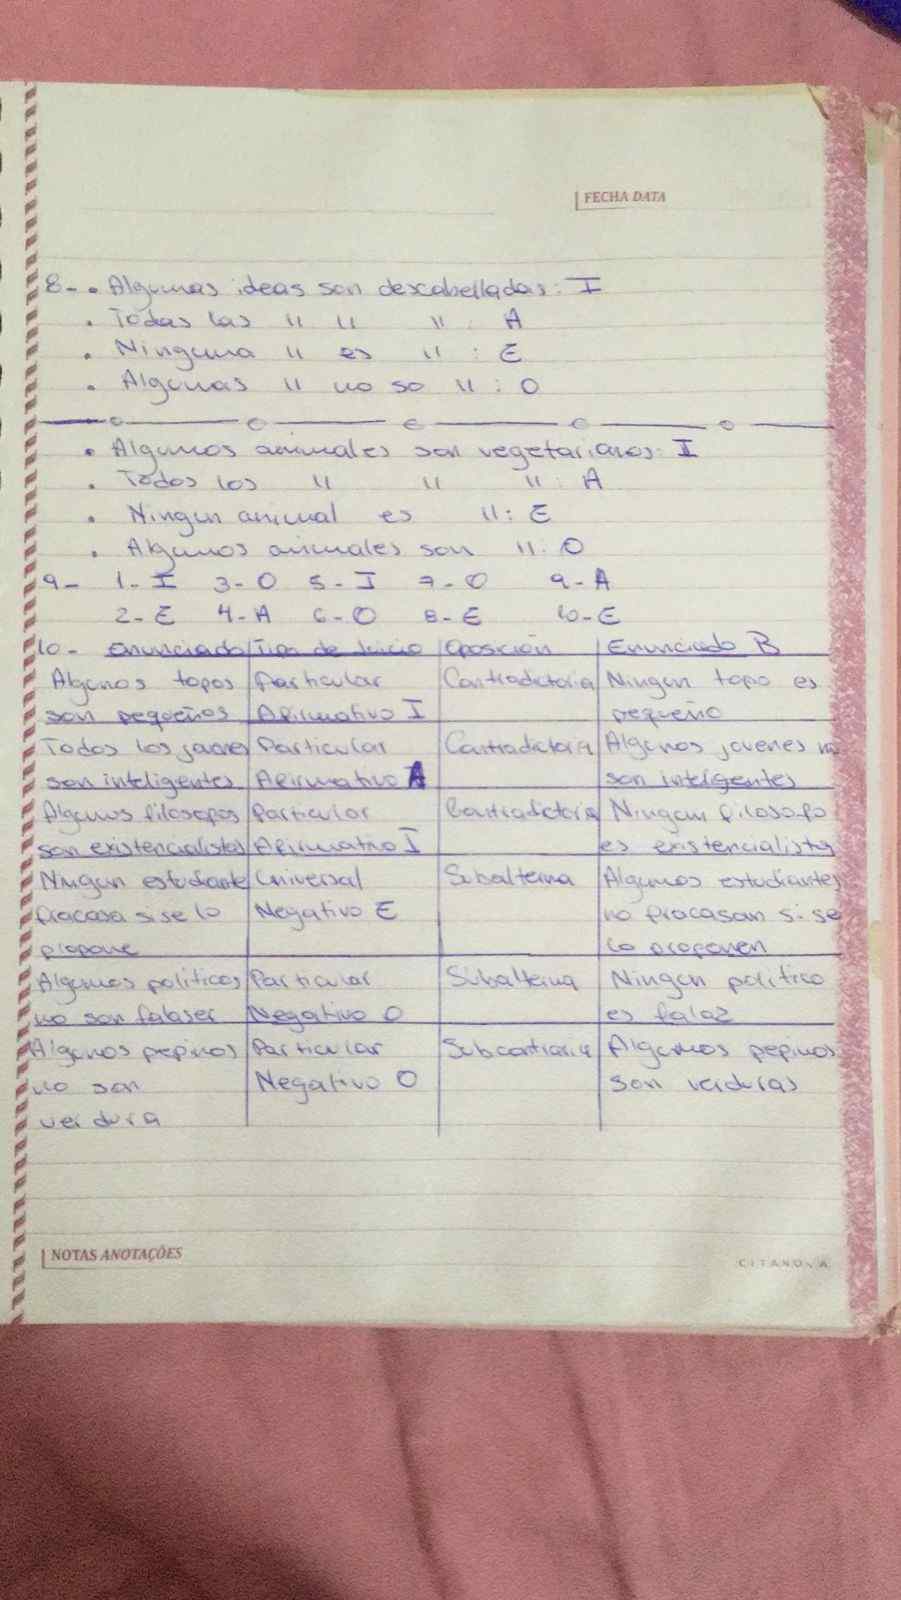 FECHA DATA
8-. Algunas ideas son descabelladas: I
. Todas las " " " : A
. Ninguna " es " : E
. Algunas " no so " : O
. Algunos animales son vegetarianos: I
. Todos los " " " : A
. Ningun animal es " : E
. Algunos animales son " : O
9- 1-I 3-O 5-I 7-O 9-A
2-E 4-A 6-O 8-E 10-E
10- enunciado Tipo de Juicio Oposición Enunciado B
Algunos topos Particular Contradictoria Ningun topo es
son pequeños Afirmativo I pequeño
Todos los jovenes Particular Contradictoria Algunos jovenes no
son inteligentes Afirmativo A son inteligentes
Algunos filosofos Particular Contradictoria Ningun filosofo
son existencialistas Afirmativo I es existencialista
Ningun estudiante Universal Subalterna Algunos estudiantes
fracasa si se lo Negativo E no fracasan si se
propone lo proponen
Algunos politicos Particular Subalterna Ningun politico
no son falaser Negativo O es falaz
Algunos pepinos Particular Subcontraria Algunos pepinos
no son Negativo O son verduras
verdura
NOTAS ANOTAÇÕES
CITANOVA